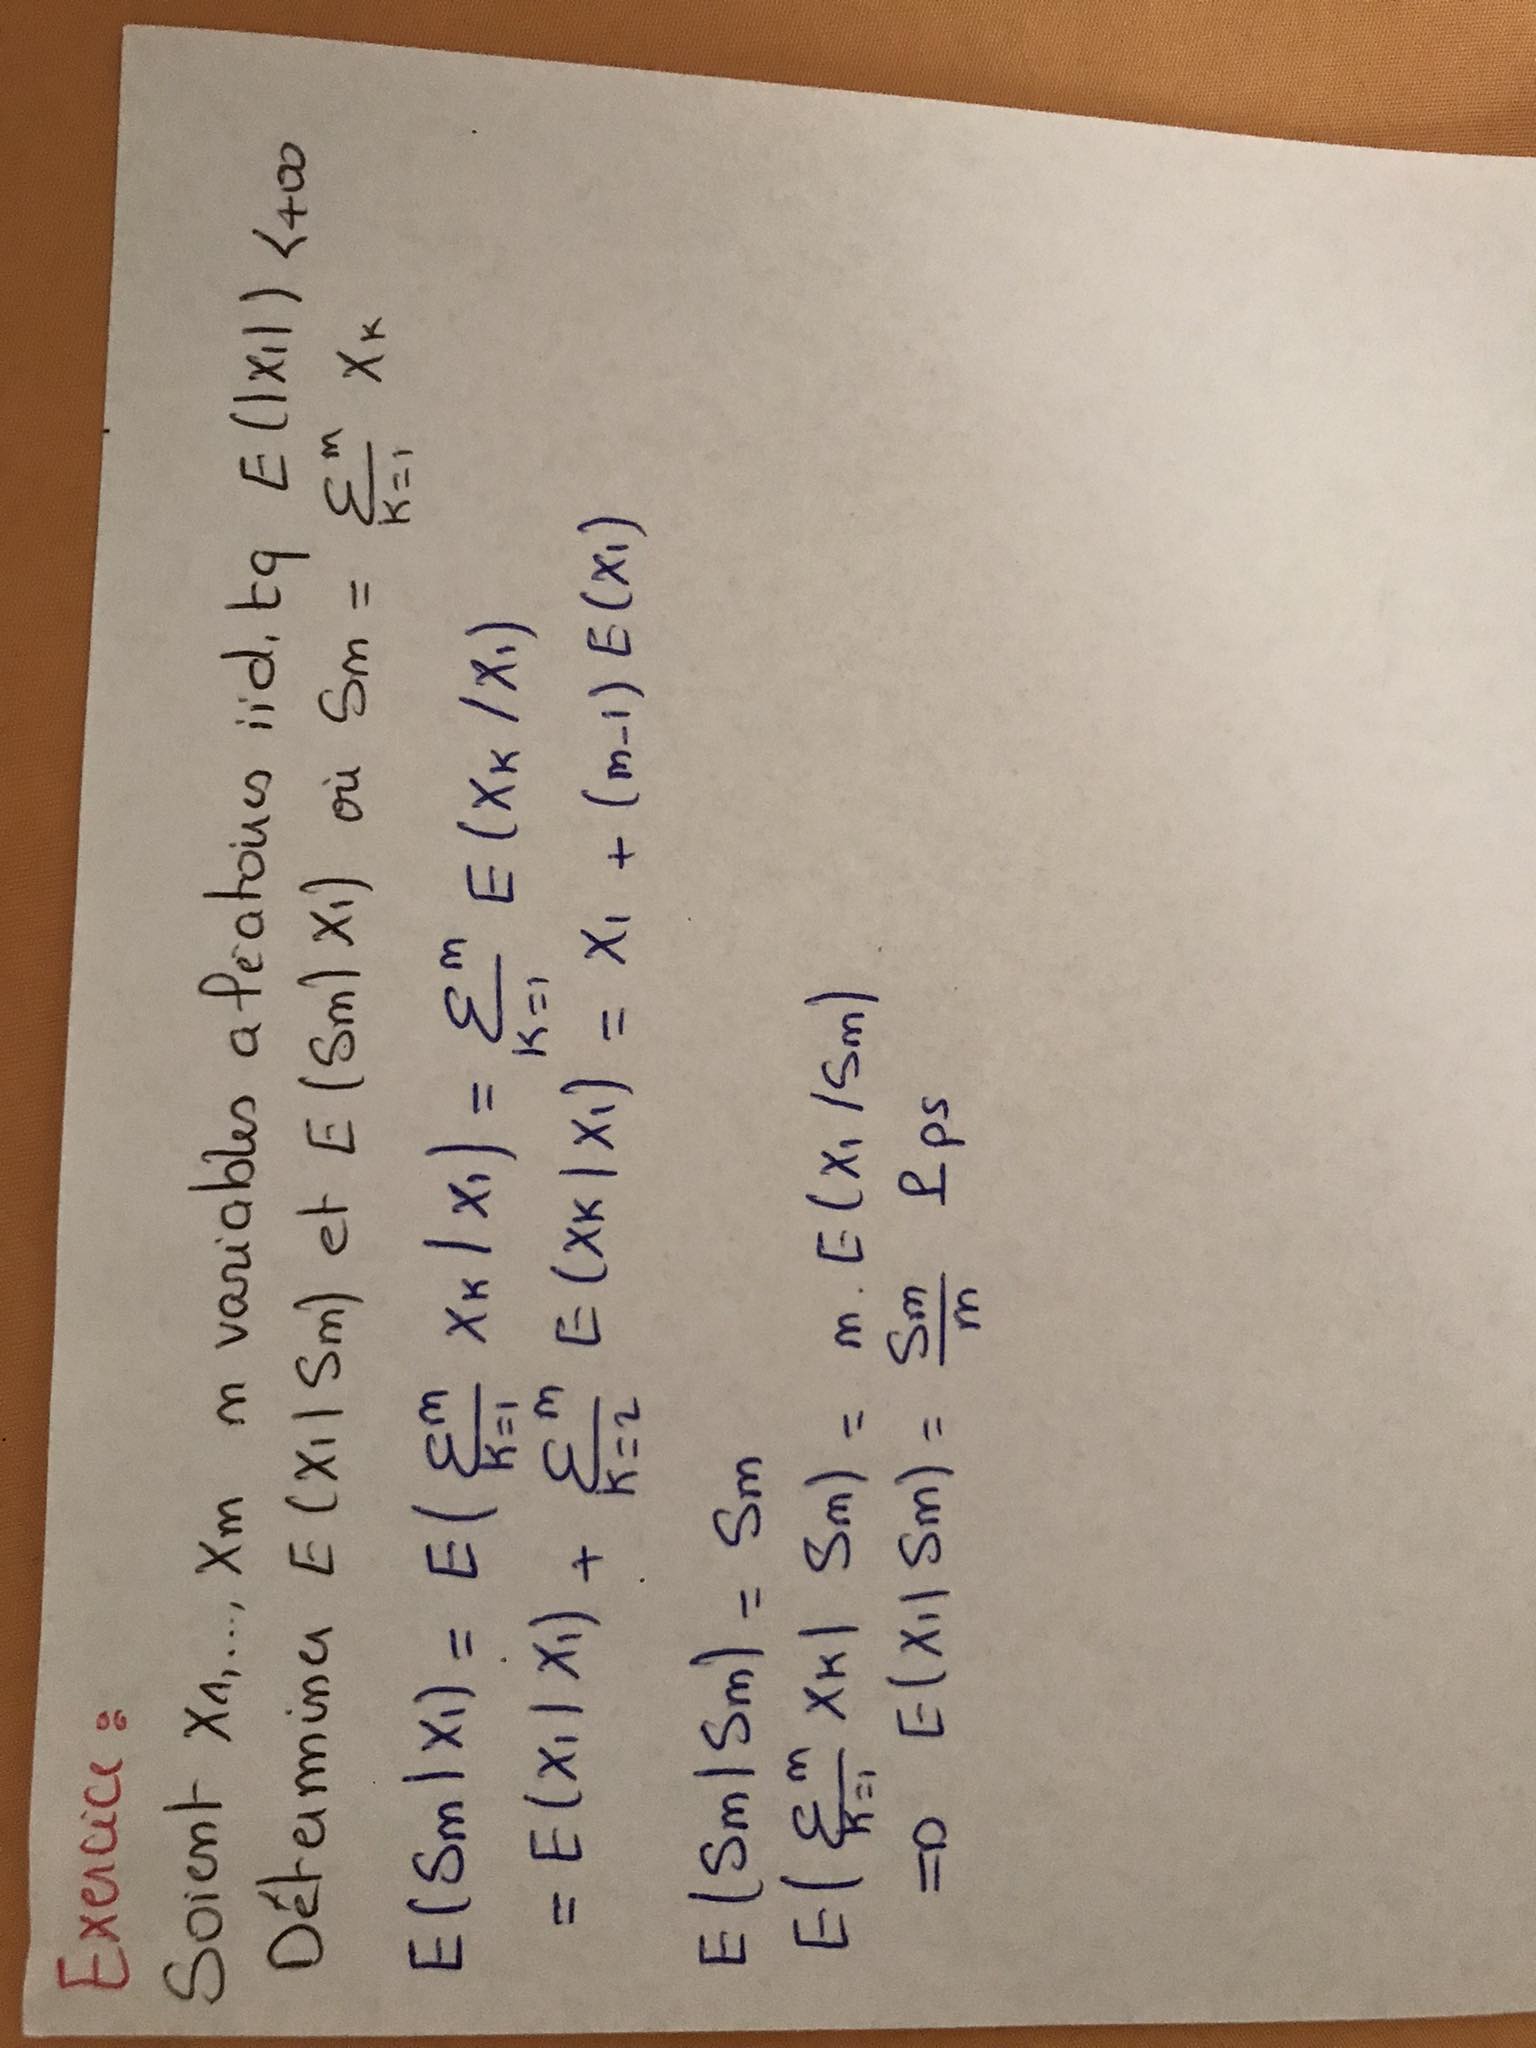 Exercice :
Soient X1,..., Xn n variables aléatoires iid. tq E(|X1|) < +∞
Déterminer E(X1 | Sn) et E(Sn | X1) où Sn = Σ_{K=1}^n XK
E(Sn | X1) = E(Σ_{K=1}^n XK / X1) = Σ_{K=1}^n E(XK / X1)
= E(X1 | X1) + Σ_{K=2}^n E(XK | X1) = X1 + (n-1) E(X1)
E(Sn | Sn) = Sn
E(Σ_{K=1}^n XK | Sn) = n. E(X1 / Sn)
=> E(X1 | Sn) = Sn/n P ps